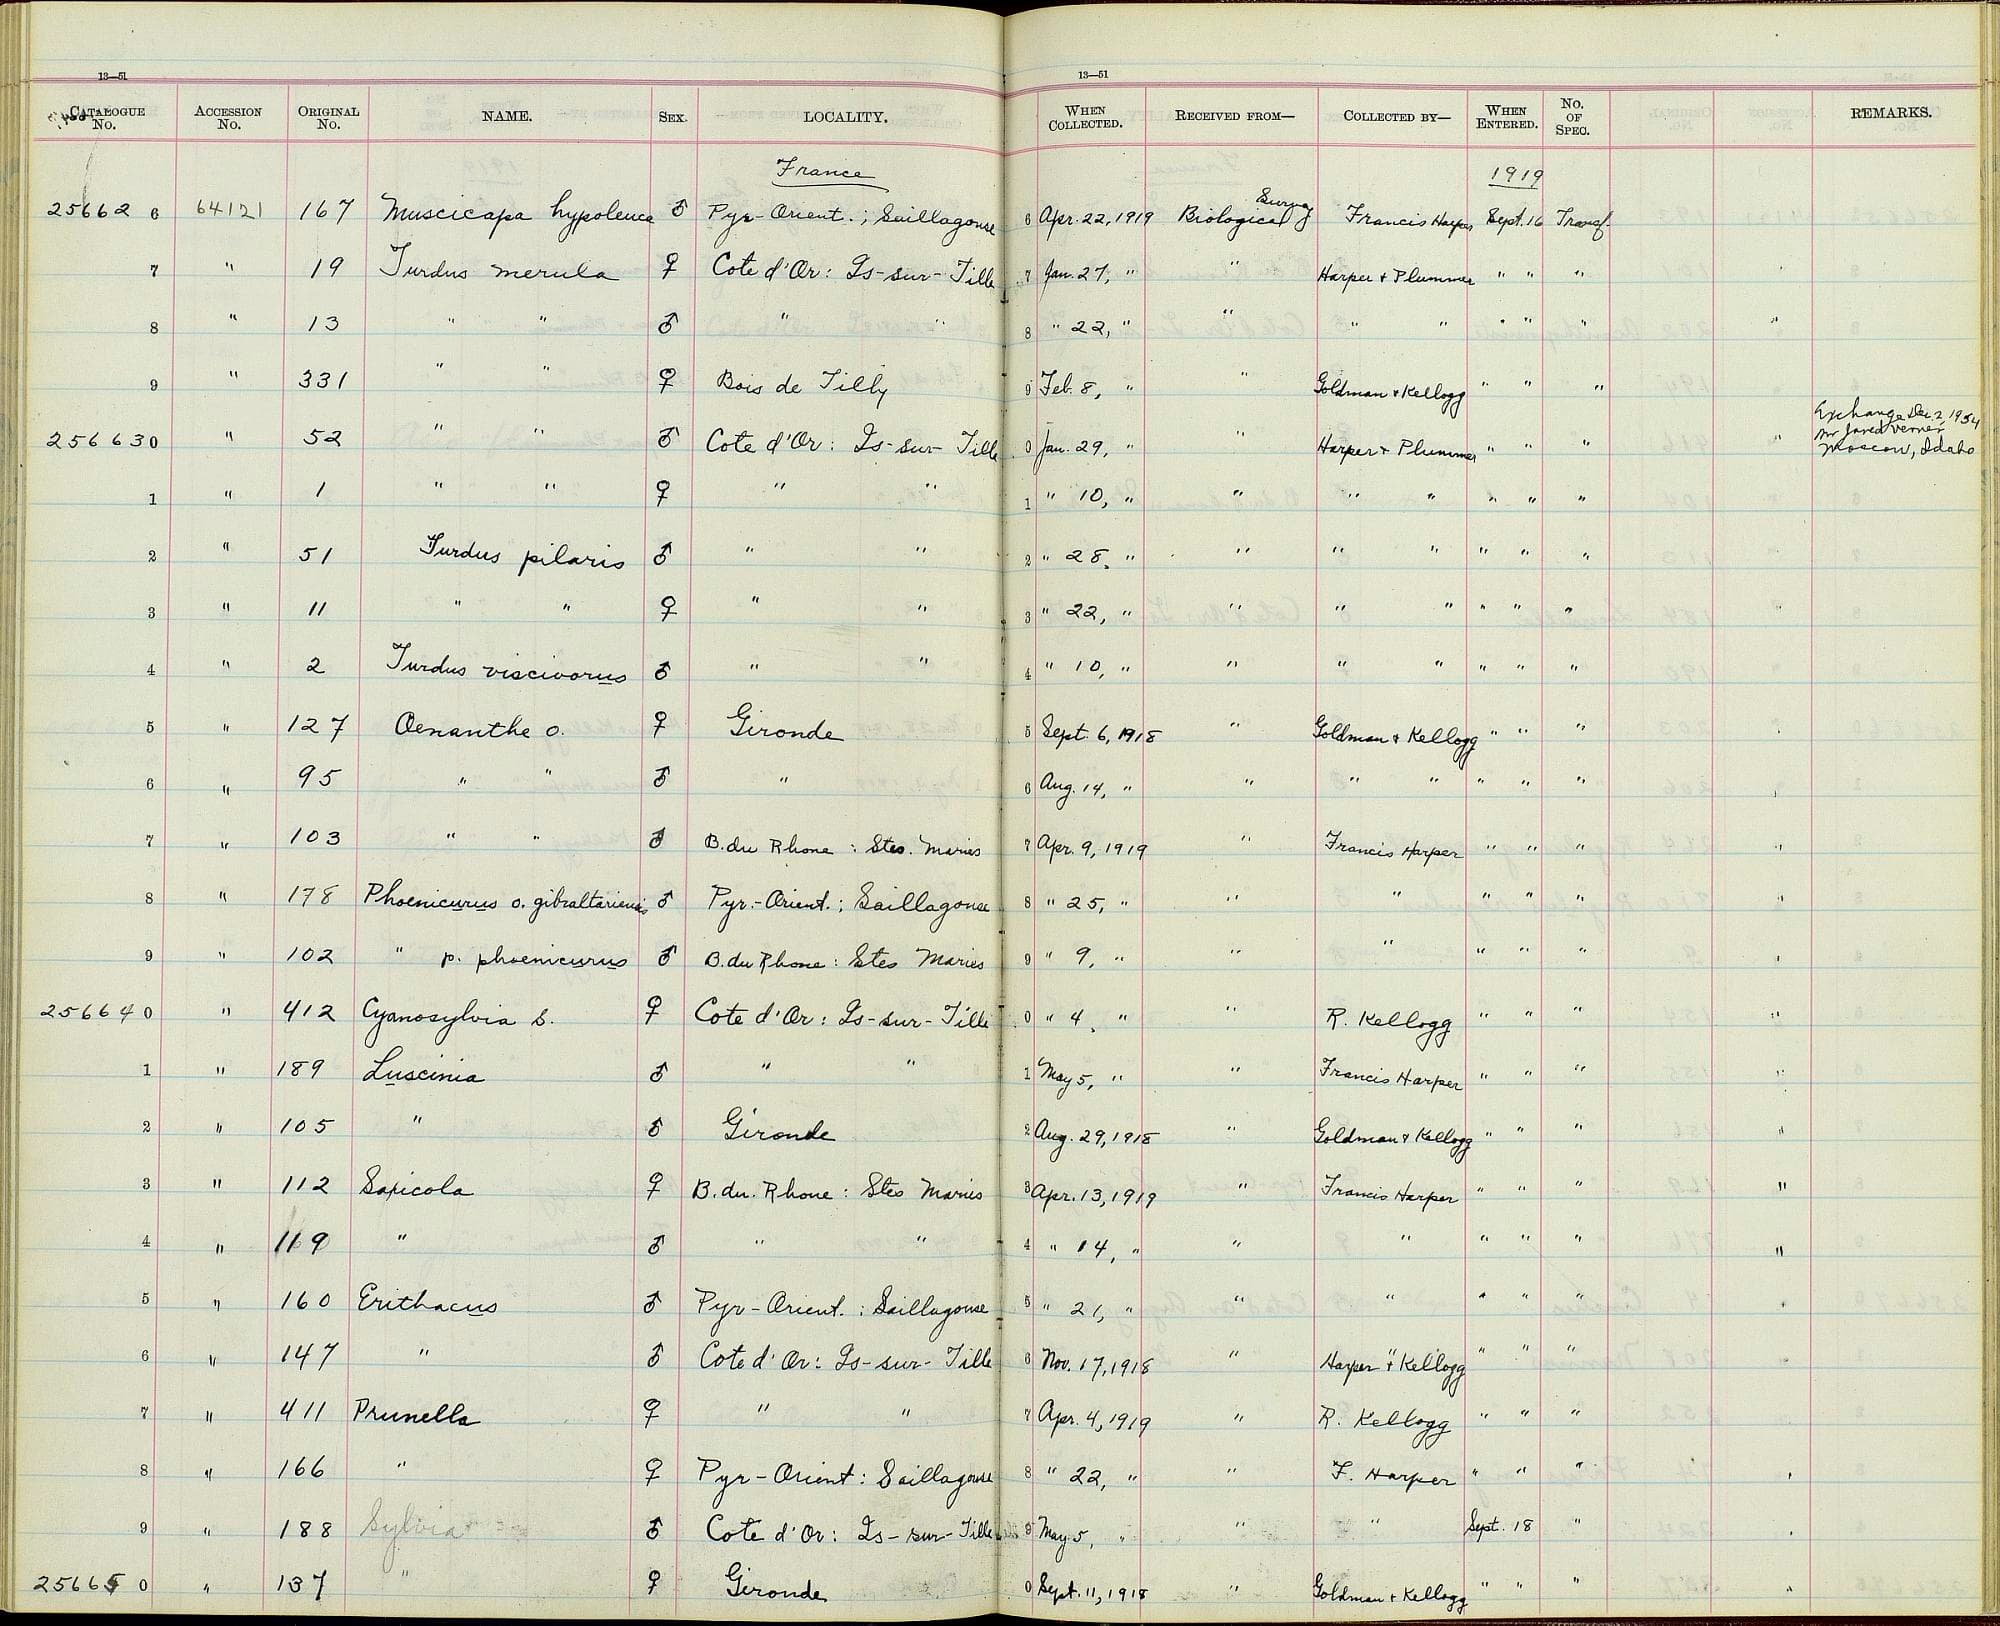 13—51 13—51
CATALOGUE No. ACCESSION No. ORIGINAL No. NAME. SEX. LOCALITY. WHEN COLLECTED. RECEIVED FROM— COLLECTED BY— WHEN ENTERED. No. OF SPEC. REMARKS.
France 1919
25662 6 64121 167 Muscicapa hypoleuca ♂ Pyr-Orient.; Saillagouse 6 Apr. 22, 1919 Biological Survey Francis Harper Sept. 16 Transf.
7 " 19 Turdus merula ♀ Cote d'Or: Is-sur-Tille 7 Jan. 27, " " Harper & Plummer " " "
8 " 13 " " ♂ " " 8 " 22, " " " " " " " "
9 " 331 " " ♀ Bois de Tilly 9 Feb. 8, " " Goldman & Kellogg " " "
25663 0 " 52 " " ♂ Cote d'Or: Is-sur-Tille 0 Jan. 29, " Harper & Plummer " " " " Exchange Dec. 2, 1954
Mr Jared Verner
Moscow, Idaho
1 " 1 " " ♀ " " 1 " 10, " " " " " " "
2 " 51 Turdus pilaris ♂ " " 2 " 28, " " " " " " "
3 " 11 " " ♀ " " 3 " 22, " " " " " " "
4 " 2 Turdus viscivorus ♂ " " 4 " 10, " " " " " " "
5 " 127 Oenanthe o. ♀ Gironde 5 Sept. 6, 1918 " Goldman & Kellogg " " "
6 " 95 " " ♂ " 6 Aug. 14, " " " " " " "
7 " 103 " " ♂ B. du Rhone: Stes. Maries 7 Apr. 9, 1919 " Francis Harper " " " "
8 " 178 Phoenicurus o. gibraltariensis ♂ Pyr.-Orient.; Saillagouse 8 " 25, " " " " " " "
9 " 102 " p. phoenicurus ♂ B. du Rhone: Stes Maries 9 " 9, " " " " " "
25664 0 " 412 Cyanosylvia s. ♀ Cote d'Or: Is-sur-Tille 0 " 4, " " R. Kellogg " " " "
1 " 189 Luscinia ♂ " " 1 May 5, " " Francis Harper " " " "
2 " 105 " ♂ Gironde 2 Aug. 29, 1918 " Goldman & Kellogg " " " "
3 " 112 Saxicola ♀ B. du. Rhone: Stes Maries 3 Apr. 13, 1919 " Francis Harper " " " "
4 " 119 " ♂ " " 4 " 14, " " " " " " "
5 " 160 Erithacus ♂ Pyr-Orient.: Saillagouse 5 " 21, " " " " " "
6 " 147 " ♂ Cote d'Or: Is-sur-Tille 6 Nov. 17, 1918 " Harper & Kellogg " " "
7 " 411 Prunella ♀ " " 7 Apr. 4, 1919 " R. Kellogg " " "
8 " 166 " ♀ Pyr-Orient: Saillagouse 8 " 22, " " F. Harper " " "
9 " 188 Sylvia ♂ Cote d'Or: Is-sur-Tille 9 May 5, " " " Sept. 18 "
25665 0 " 137 " ♀ Gironde 0 Sept. 11, 1918 " Goldman & Kellogg " " " "